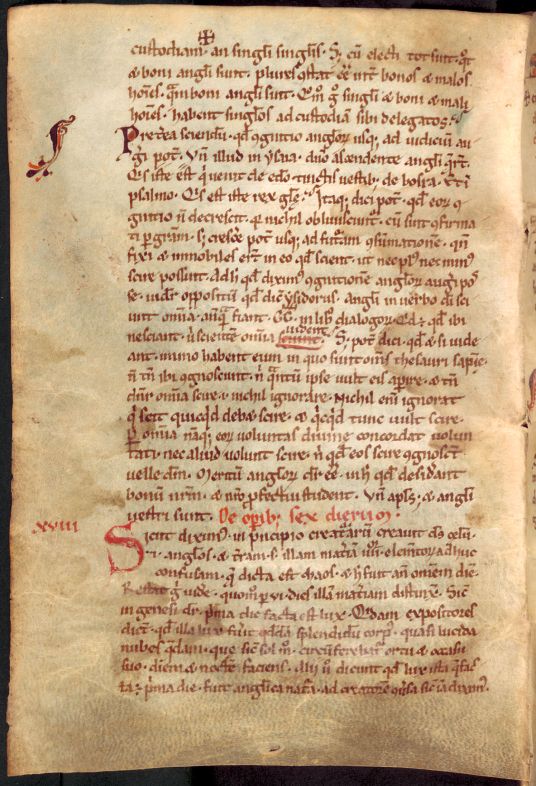 custodiam · an singli singlis · S; cū electi tot sint · qt
& boni angli sunt · plures ɔstat eē int̄ bonos & malos
hoīes · quam boni angli sint · & oms̄ g° singli & boni & mali
hoīes · habent singlos ad custodiā sibi delegatos ·
Pret̄ea sciendū · qd ɔgnitio anglor usq; ad iudiciū au
ḡi pot̄ · Vn̄ illud in ysaia · dn̄o ascendente angli
Qis iste est qi uenit de edō tinctis uestib; de bosra · & in
psalmo · Qis est iste rex glē · Itaq; dici pot̄ · qd eor ɔ
gnitio n̄ decrescit · q nichil obliuiscunt̄ · cū sint ɔfirma
ti p gram̄ · s; cresce pot̄ usq; ad futām ɔsumationē · qn̄
fixi & inmobiles er̄t in eo qd scient · ut nec plus nec minus
scire possint · Ad h̄ qd diximus ɔgnitionē anglor augi pos
se · uidet̄ oppositū qd dic̄ ysidorus · angli in uerbo dī sci
unt omīa · anq̄ fiant · GG · in lib° dialogor · Qd ē qd ibi
nesciant · ū scientē omīa sciunt · S; pot̄ dici · qd & si uide
uident
ant · immo habent eum in quo sunt oms̄ thesauri sapiē
n̄ tn̄ ibi ɔgnoscunt · n̄ q̄ntū ipse uult eis apire · & tn̄
dn̄r omīa scire · & nichil ignorare · Nichil eni ignorat
qi scit quicqid debet scire · & qicqid tunc uult scire ·
p omīa naq; eor uoluntas diuine concordat uolun
tati · nec aliud uolunt scire · n̄ qd eos scire ɔgnoscūt
uelle dm̄ · Meritū anglor dr̄ eē · in h̄ qd desidant
bonū nr̄m · & nr̄o pfectui student · Vn̄ apls · & angli
uestri sunt · De opib; sex dierum ·
xviii
Sicut diximus in pincipio creatarū creauit ds̄ celū ·
i · anglos · & tram · s · illam matiam iiii elemtor adhuc
confusam · q̄ dicta est chaos · & h̄ fuit an̄ omēm diē ·
Restat g° uide · quom° p vi dies illā matiam distinx̄ · Sic
in genesi dr̄ · pima die facta est lux · Qidam expositores
dicūt · qd illa lux fuit qddā splendidū corp̄ · quasi lucida
nubes qdam · que sic sol m° circūferebat̄ · ortu & occasu
suo · diem & noctē faciens · Alij ū dicunt qd lux illa q̄ fac
ta ē pima die · fuit anglica natā · ad creatorē ɔūsa sic iā diximus